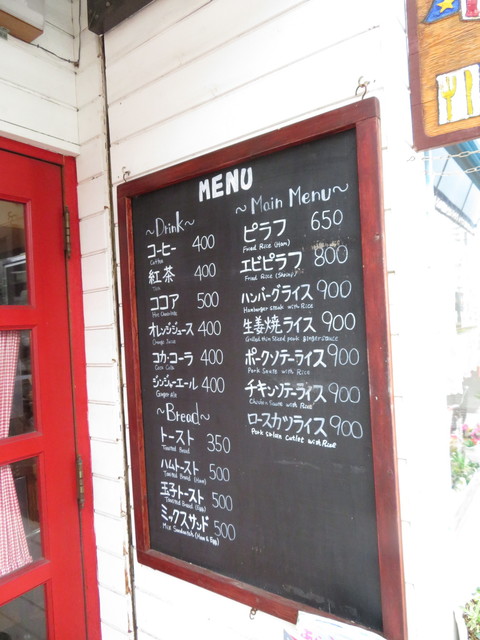 MENU
~Drink~
コーヒー 400
Coffee
紅茶 400
Tea
ココア 500
Hot Chocolate
オレンジジュース 400
Orange Juice
コカ・コーラ 400
Coca Cola
ジンジャーエール 400
Ginger Ale
~Bread~
トースト 350
Toasted Bread
ハムトースト 500
Toasted Bread (Ham)
玉子トースト 500
Toasted Bread (Egg)
ミックスサンド 500
Mix Sandwich (Ham & Egg)
~Main Menu~
ピラフ 650
Fried Rice (Ham)
エビピラフ 800
Fried Rice (Shrimp)
ハンバーグライス 900
Hamburger steak with Rice
生姜焼ライス 900
Grilled thin sliced pork gingersauce
ポークソテーライス 900
Pork Saute with Rice
チキンソテーライス 900
Chicken Saute with Rice
ロースカツライス 900
Pork Sirloin Cutlet with Rice